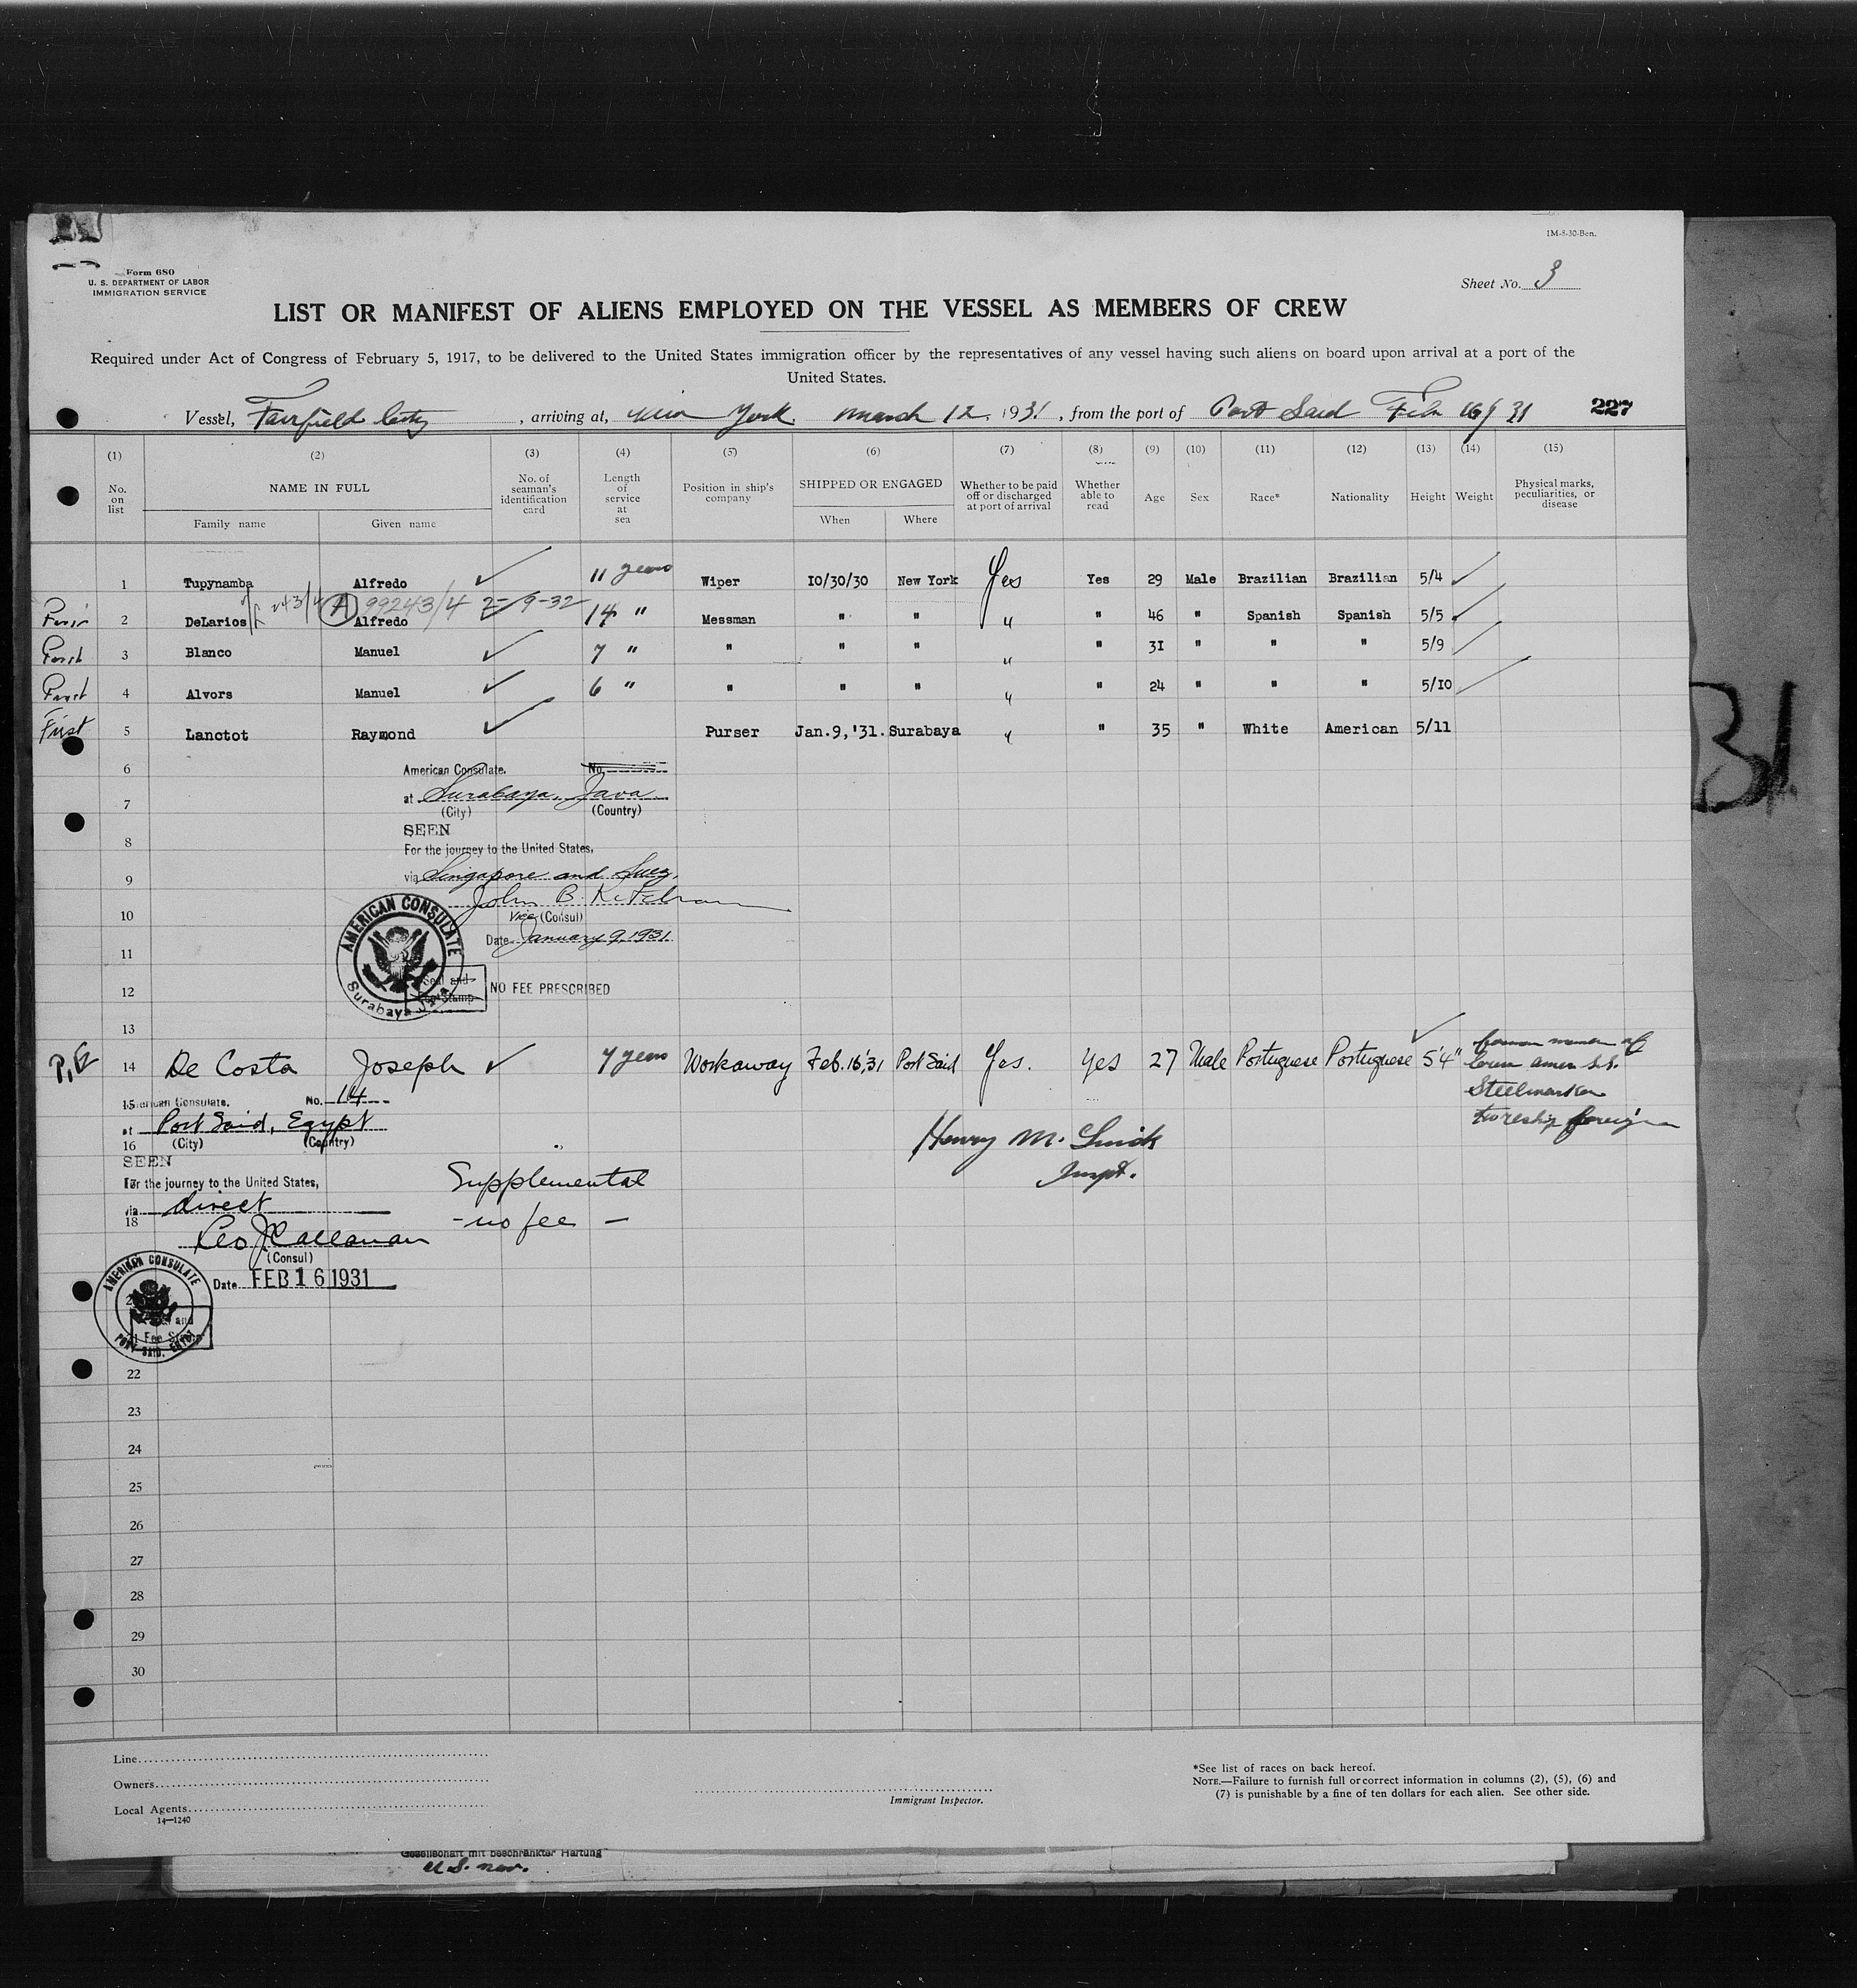 1M-8-30-Ben.
Form 680
U. S. DEPARTMENT OF LABOR
IMMIGRATION SERVICE
Sheet No. 3
LIST OR MANIFEST OF ALIENS EMPLOYED ON THE VESSEL AS MEMBERS OF CREW
Required under Act of Congress of February 5, 1917, to be delivered to the United States immigration officer by the representatives of any vessel having such aliens on board upon arrival at a port of the
United States.
Vessel, Fairfield City, arriving at, New York March 12, 1931, from the port of Port Said Feb 16/31 227
(1) (2) (3) (4) (5) (6) (7) (8) (9) (10) (11) (12) (13) (14) (15)
No. on list NAME IN FULL Family name Given name No. of seaman's identification card Length of service at sea Position in ship's company SHIPPED OR ENGAGED When Where Whether to be paid off or discharged at port of arrival Whether able to read Age Sex Race* Nationality Height Weight Physical marks, peculiarities, or disease
1 Tupynamba Alfredo 11 years Wiper 10/30/30 New York Yes Yes 29 Male Brazilian Brazilian 5/4
A 99243/4 2-9-32
2 DeLarios Alfredo 14 " Messman " " " " 46 " Spanish Spanish 5/5
3 Blanco Manuel 7 " " " " " " 31 " " " 5/9
4 Alvors Manuel 6 " " " " " " 24 " " " 5/10
First 5 Lanctot Raymond Purser Jan.9,'31. Surabaya " " 35 " White American 5/11
6 American Consulate. No.
7 at Surabaya, Java
(City) (Country)
SEEN
8 For the journey to the United States,
9 via Singapore and Suez.
John B. Ketcham
10 Vice (Consul)
11 Date January 9, 1931
AMERICAN CONSULATE
Surabaya Java
Seal and
Fee Stamp
12 NO FEE PRESCRIBED
13
14 De Costa Joseph 7 years Workaway Feb. 16,'31 Port Said Yes. Yes 27 Male Portuguese Portuguese 5'4"
15 American Consulate. No. 14
at Port Said, Egypt
16 (City) (Country)
SEEN
For the journey to the United States,
via direct
18
Leo J Callanan
(Consul)
Date FEB 16 1931
AMERICAN CONSULATE
PORT SAID, EGYPT
and
Fee Stamp
Supplemental
- no fee -
Steelmarker
foreign
Henry M.
Inspt.
22
23
24
25
26
27
28
29
30
31
Line
Owners
Local Agents
14—1240
Immigrant Inspector.
*See list of races on back hereof.
NOTE.—Failure to furnish full or correct information in columns (2), (5), (6) and
(7) is punishable by a fine of ten dollars for each alien. See other side.
Gesellschaft mit beschränkter Haftung
U.S. nav.